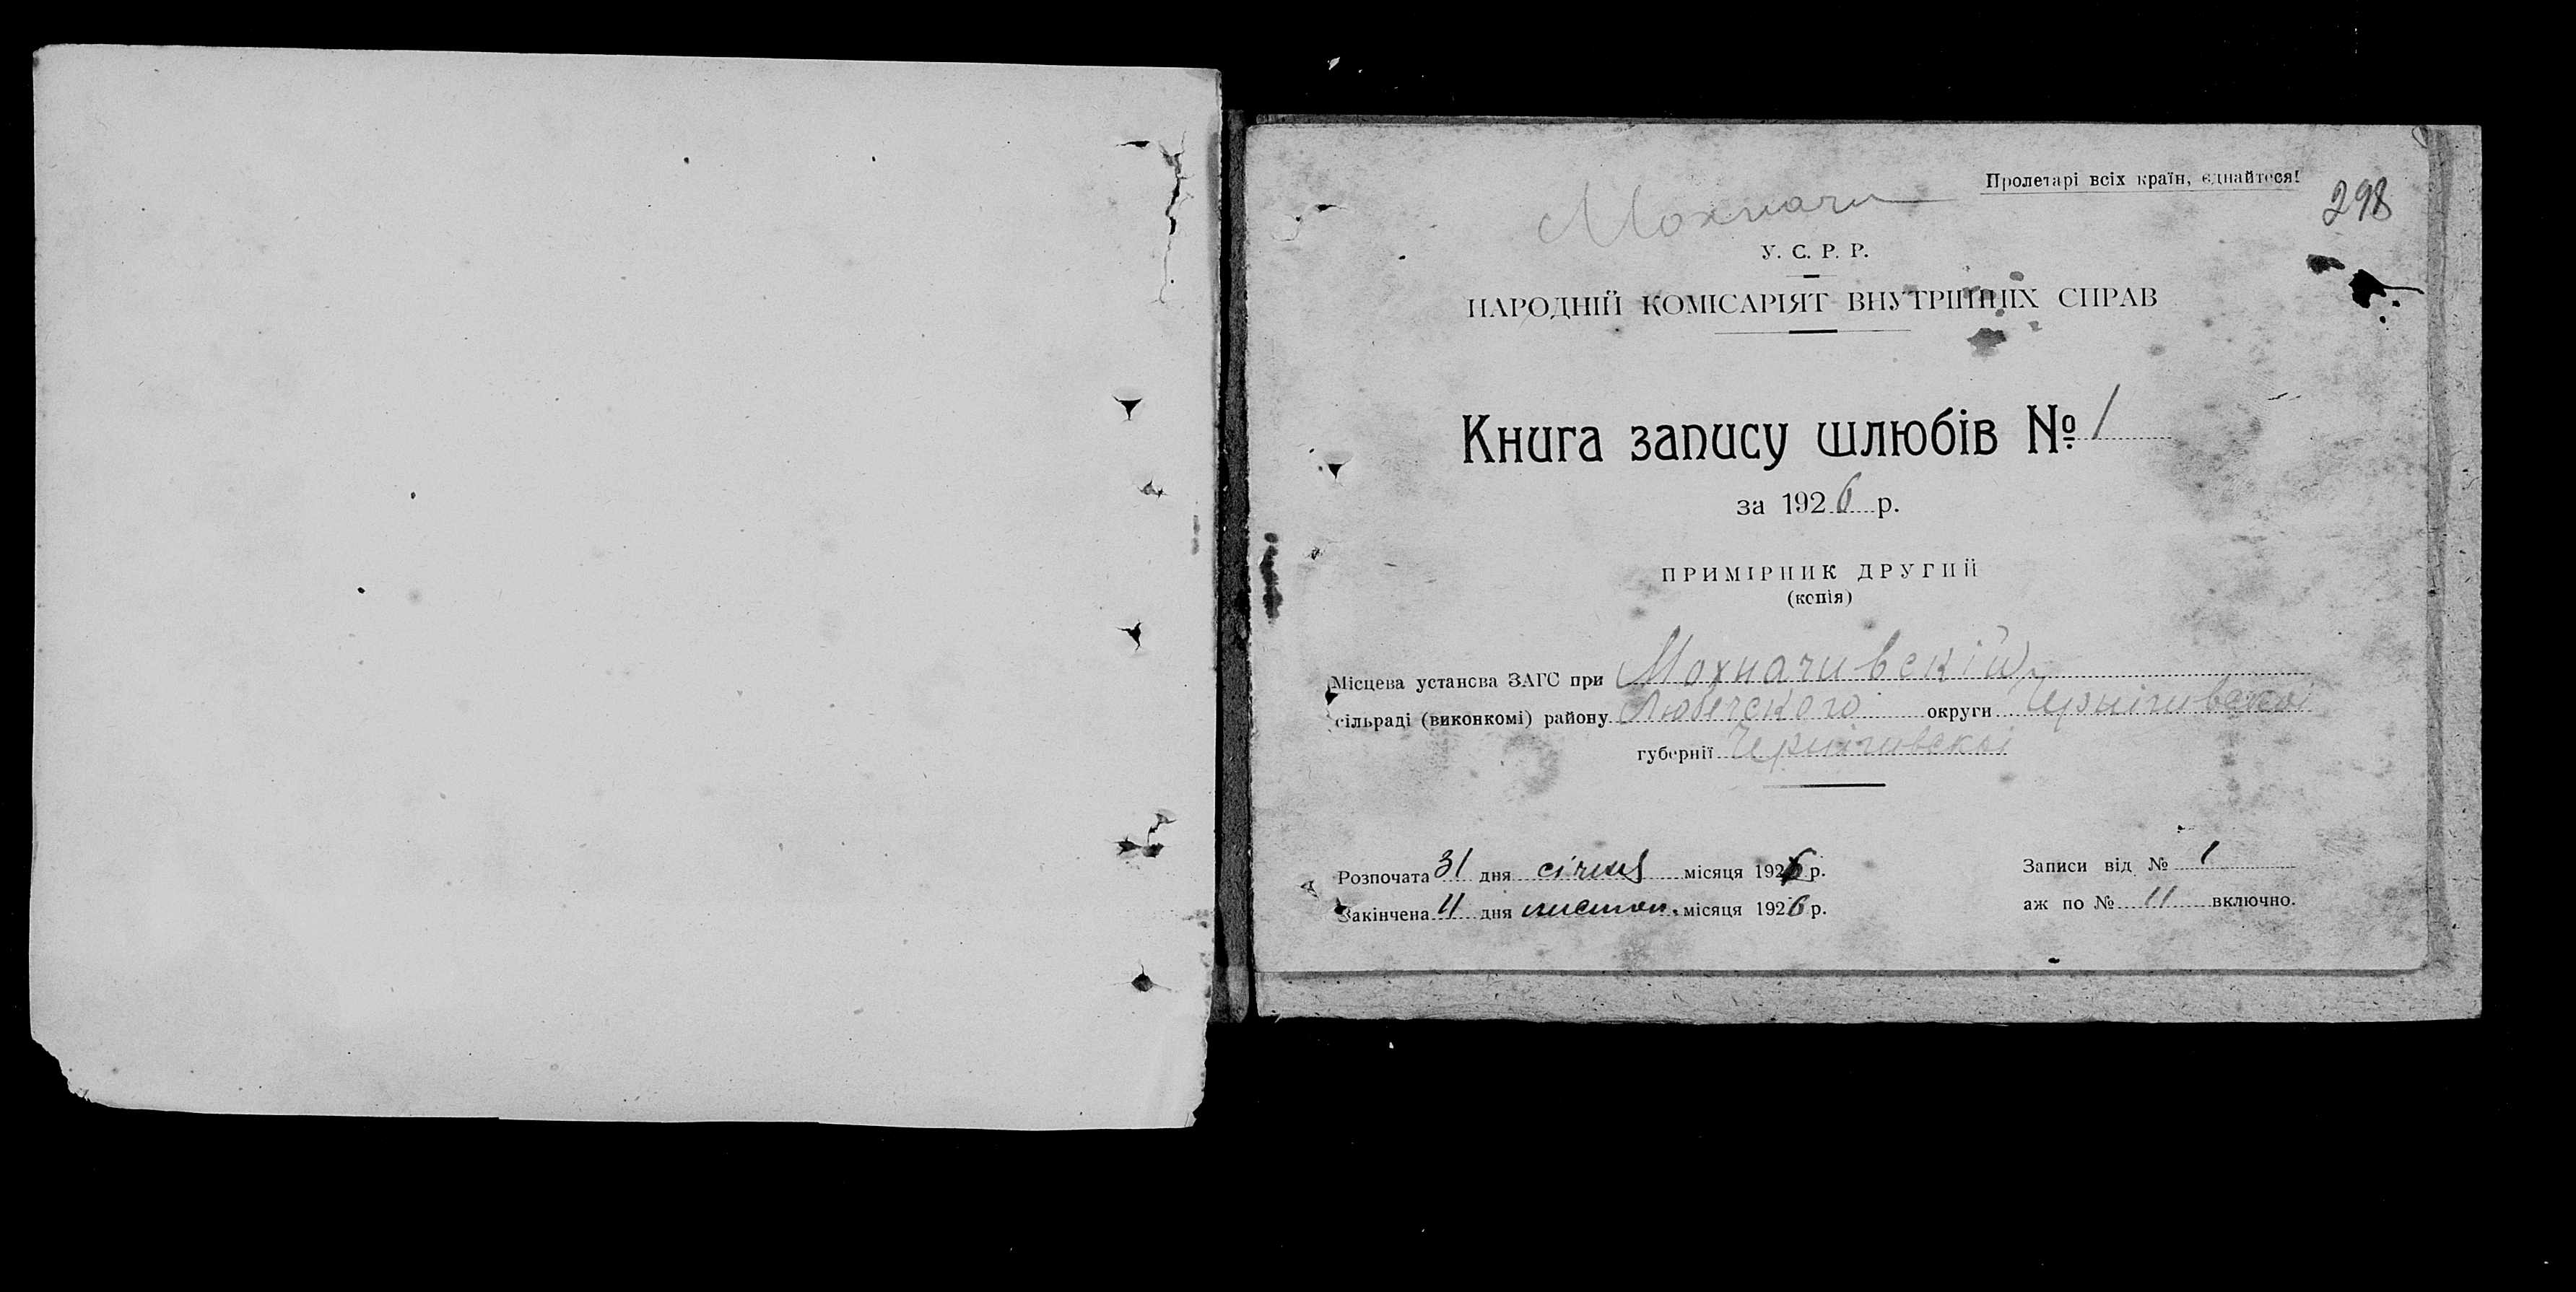 Пролетарі всіх країн, єднайтеся!
298
Мохначи
У. С. Р. Р.
НАРОДНІЙ КОМІСАРІЯТ ВНУТРІШНІХ СПРАВ
Книга запису шлюбів № 1
за 1926 р.
ПРИМІРНИК ДРУГИЙ
(копія)
Місцева установа ЗАГС при Мохначивскій
сільраді (виконкомі) району Любечского округи Чернігивскоі
губернії Чернігивскоі
Розпочата 31 дня січня місяця 1926 р.
Закінчена 11 дня листоп. місяця 1926 р.
Записи від № 1
аж по № 11 включно.